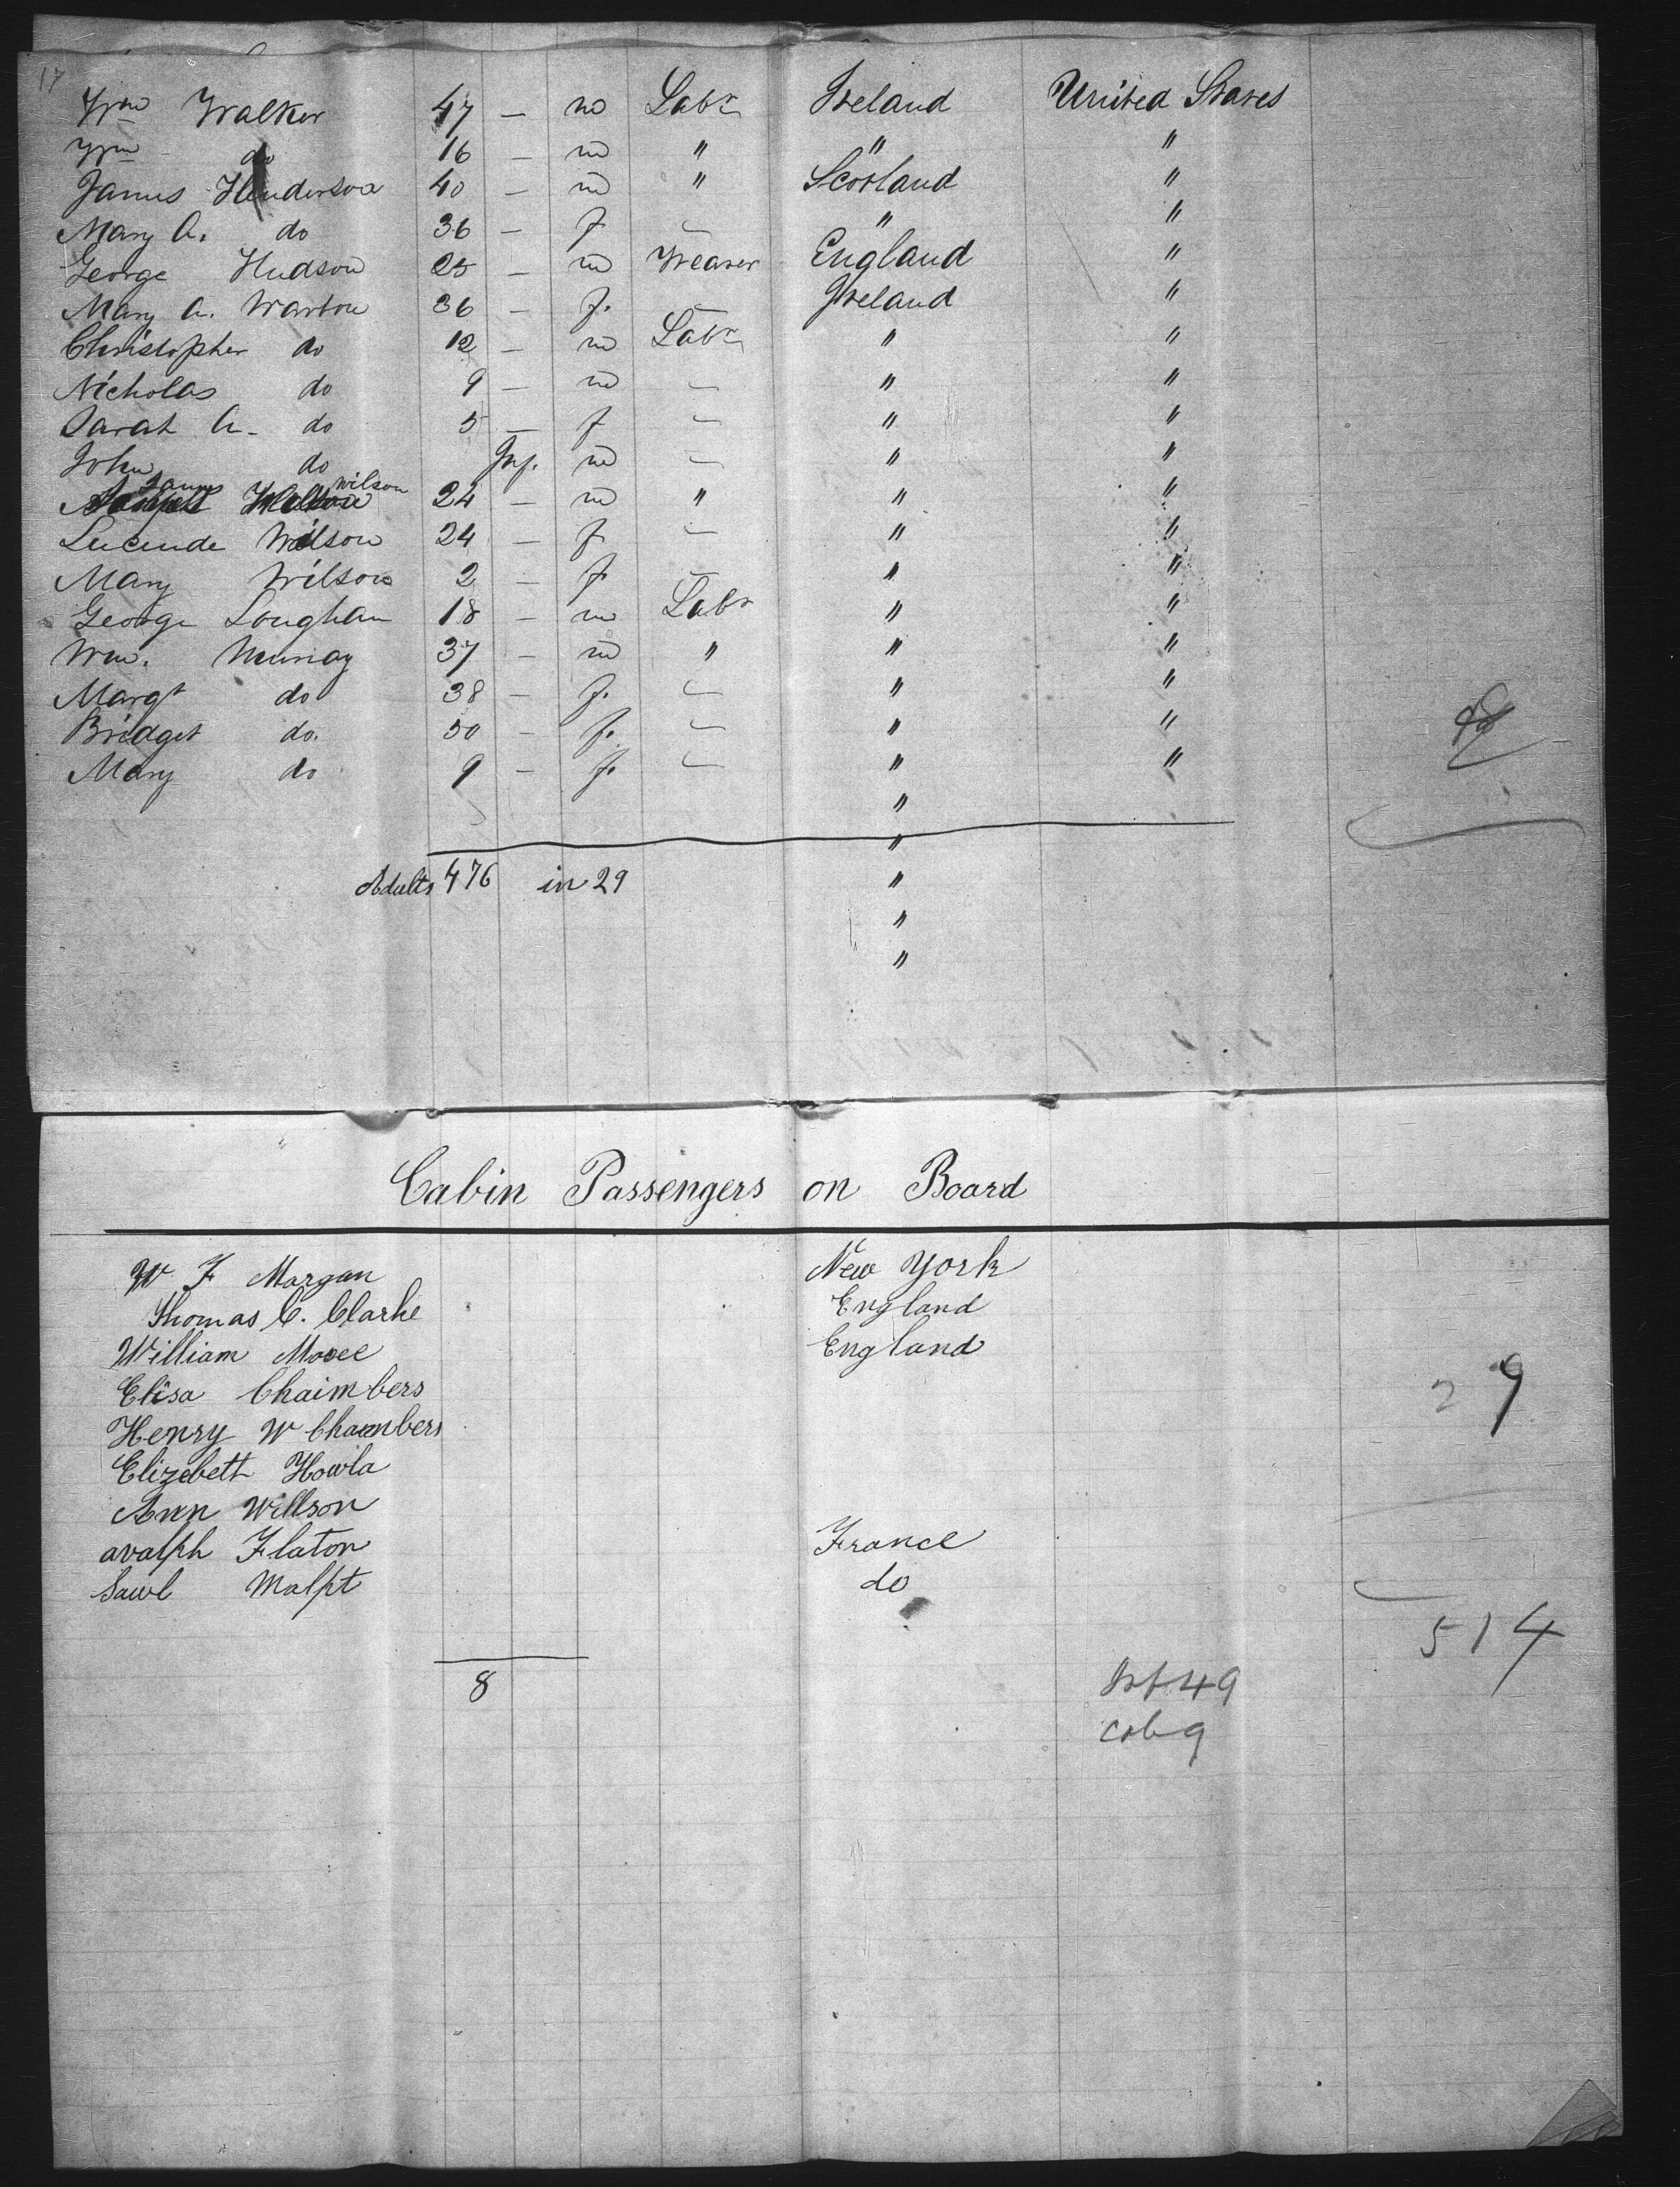 17
Wm Walker 47 — m Labr Ireland United States
Wm do 16 — m " " "
James Henderson 40 — m " Scotland "
Mary A. do 36 — f — " "
George Hudson 25 — m Weaver England "
Mary A. Warton 36 — f. — Ireland "
Christopher do 12 — m Labr " "
Nicholas do 9 — m — " "
Sarah A. do 5 — f — " "
John do Inf. m — " "
James Wilson 24 — m " " "
Lucinde Wilson 24 — f — " "
Mary Wilson 2 — f. — " "
George Loughan 18 — m Labr " "
Wm. Murray 37 — m " " "
Margt do 38 — f. — " "
Bridget do. 50 — f. — " "
Mary do 9 — f. — " "
"
"
Adults 476 in 29 "
"
"
Cabin Passengers on Board
W F Morgan New York
Thomas C. Clarke England
William Moore England
Elisa Chaimbers
Henry W Chambers
Elizebett Howla
Ann Willson
avalph Flaton France
Sawl Malpt do
29
514
8
Inf 49
Cab 9